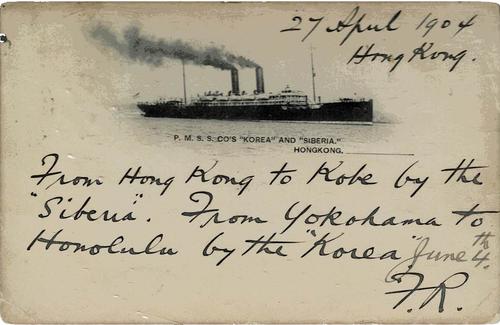 27 April 1904
Hong Kong.
P. M. S. S. CO'S "KOREA" AND "SIBERIA,"
HONGKONG.
From Hong Kong to Kobe by the
"Siberia". From Yokohama to
Honolulu by the "Korea" June 4th.
F.R.